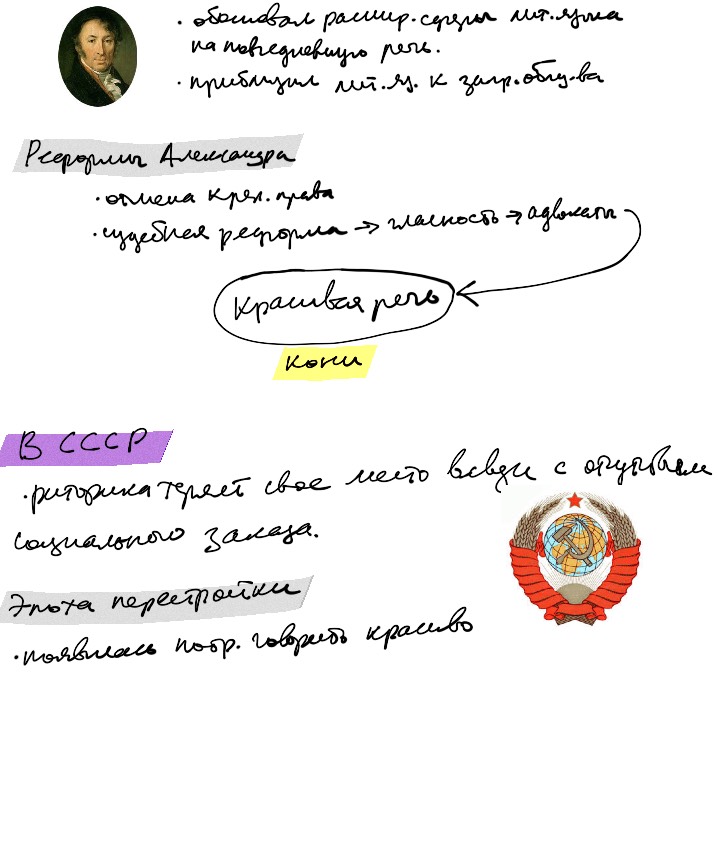 · обосновал расшир. сферы лит. языка
на повседневную речь.
· приблизил лит. яз. к загр. общ-ва
Реформы Александра
· отмена креп. права
· судебная реформа → гласность → адвокаты
Красивая речь
Кони
В СССР
· риторика теряет свое место в связи с отсутствием
социального заказа.
Эпоха перестройки
· появилась потр. говорить красиво